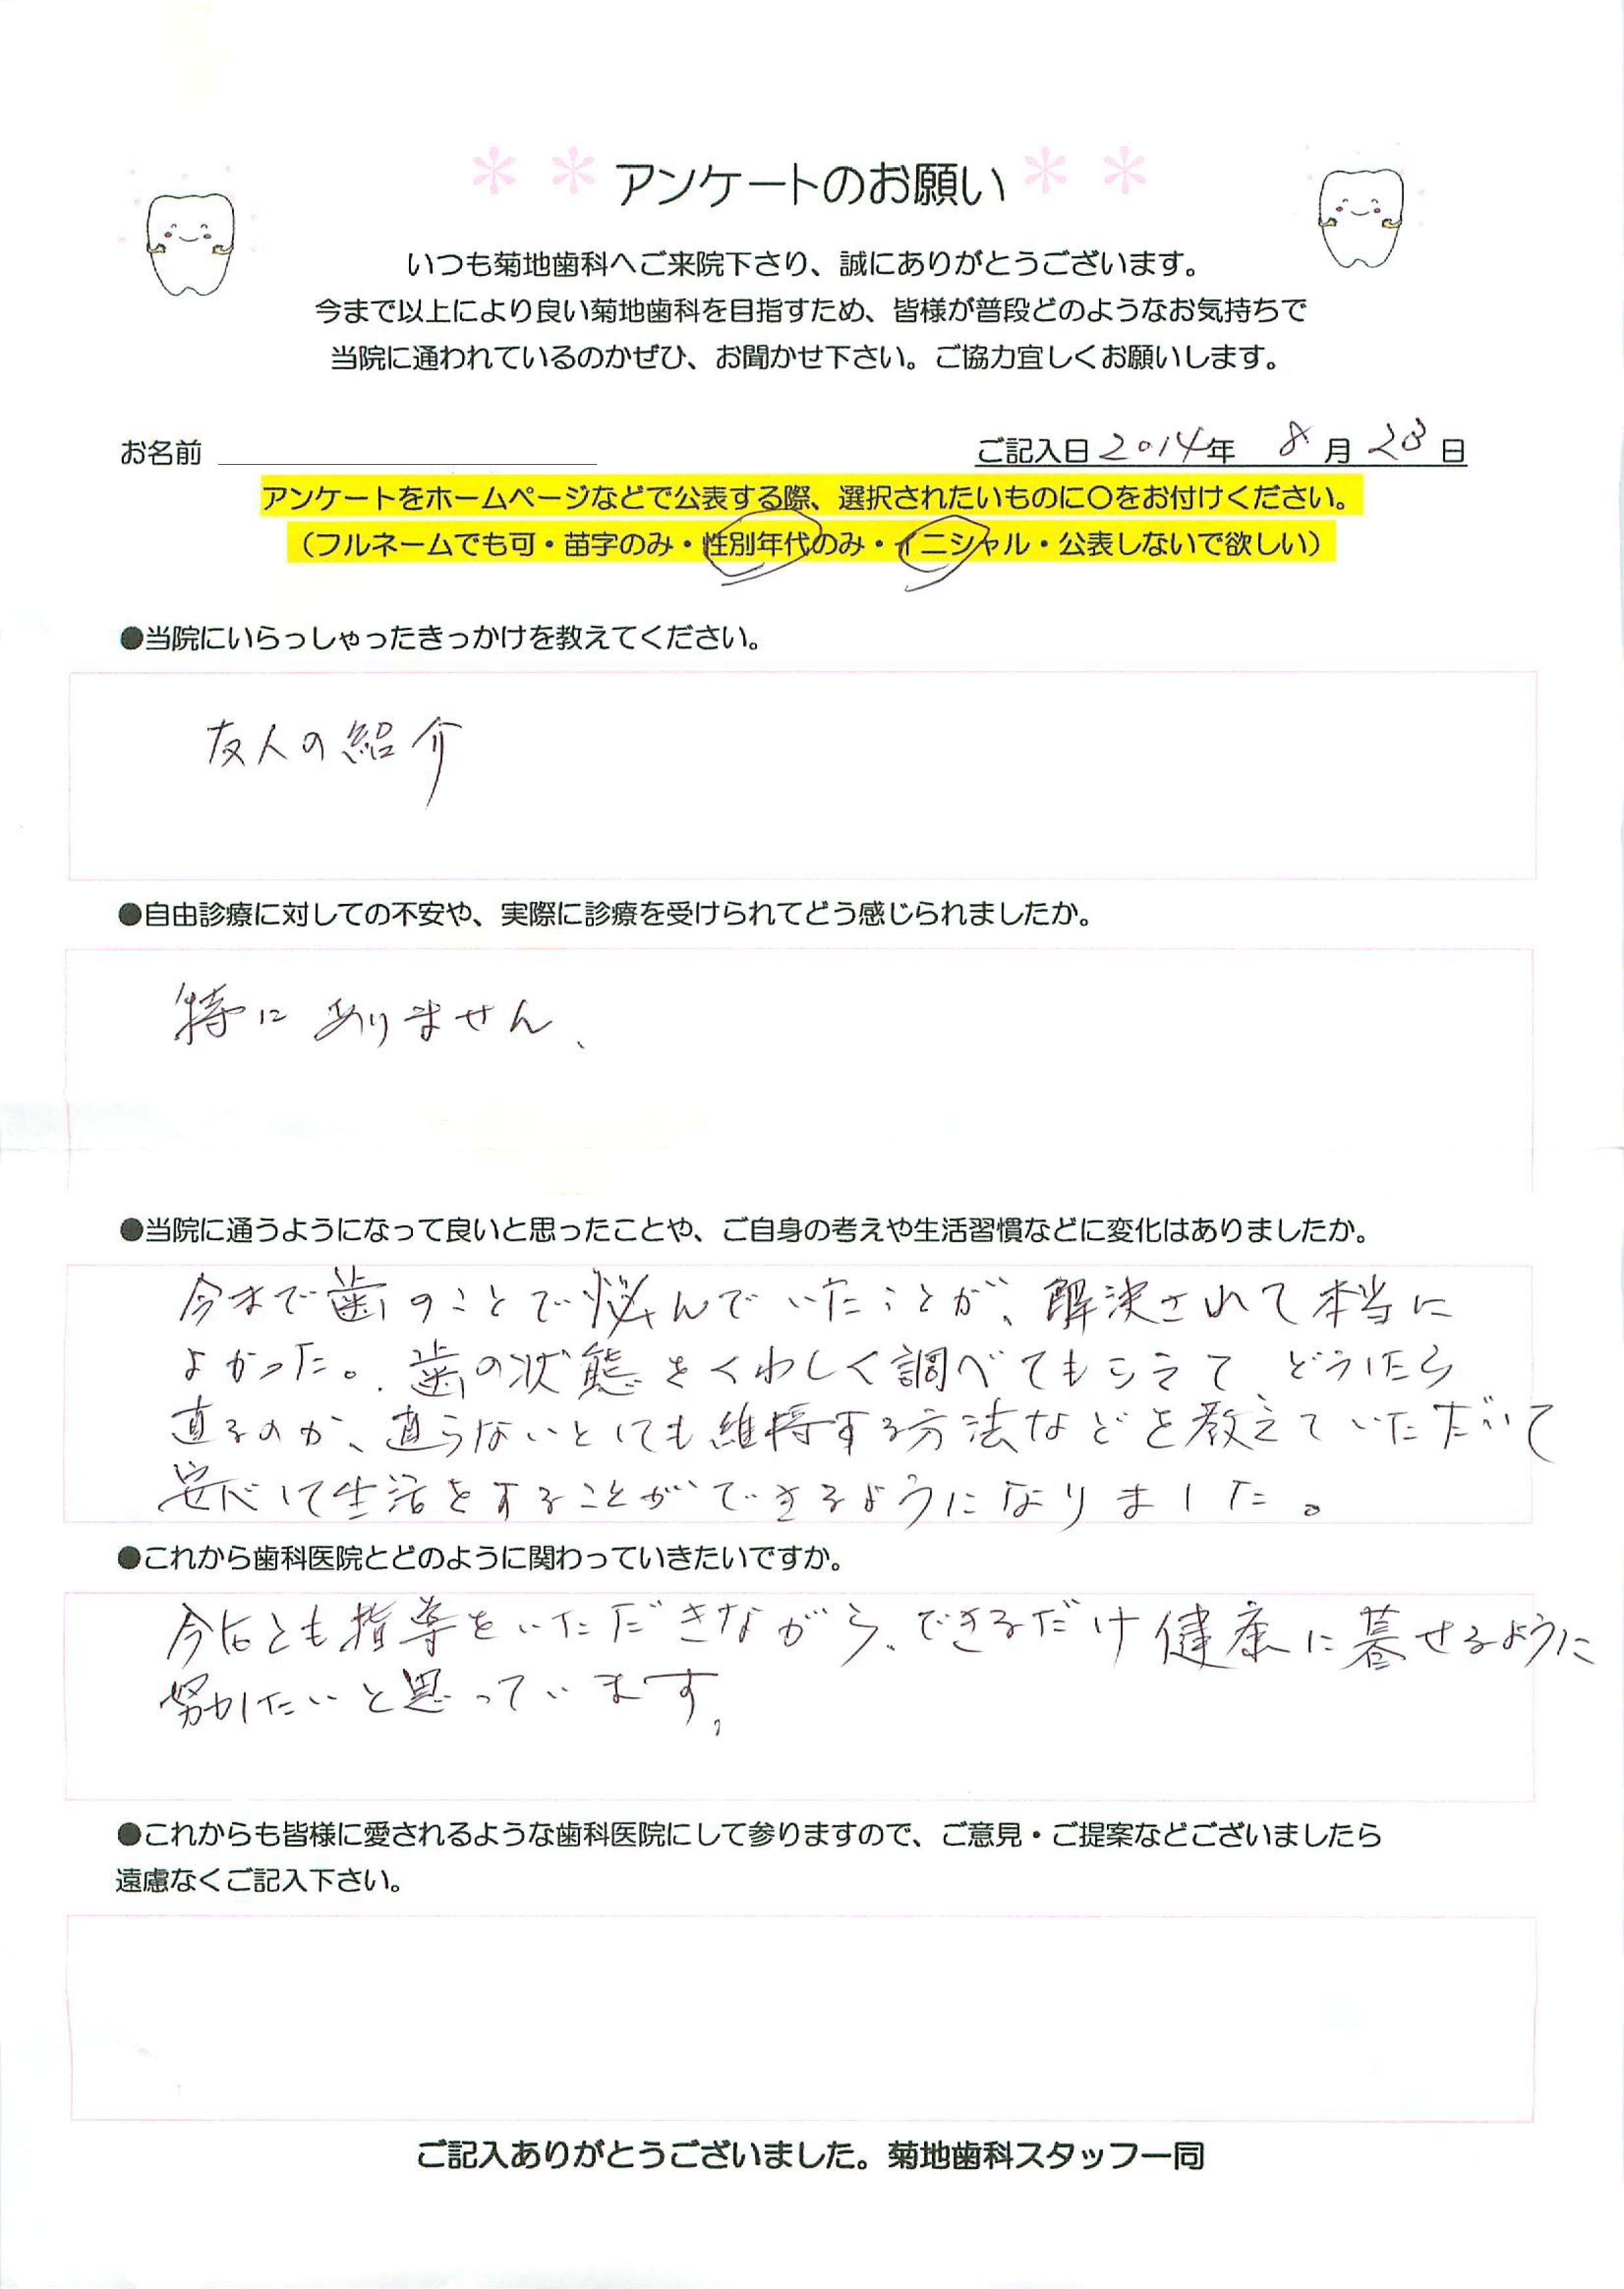 アンケートのお願い
いつも菊地歯科へご来院下さり、誠にありがとうございます。
今まで以上により良い菊地歯科を目指すため、皆様が普段どのようなお気持ちで
当院に通われているのかぜひ、お聞かせ下さい。ご協力宜しくお願いします。
お名前 ご記入日 2014年 8月 28日
アンケートをホームページなどで公表する際、選択されたいものに〇をお付けください。
（フルネームでも可・苗字のみ・性別年代のみ・イニシャル・公表しないで欲しい）
●当院にいらっしゃったきっかけを教えてください。
友人の紹介
●自由診療に対しての不安や、実際に診療を受けられてどう感じられましたか。
特にありません、
●当院に通うようになって良いと思ったことや、ご自身の考えや生活習慣などに変化はありましたか。
今まで歯のことで悩んでいたことが、解決されて本当に
よかった。歯の状態をくわしく調べてもらえて どうしたら
直るのか、直らないとしても維持する方法などを教えていただいて
安心して生活をすることができるようになりました。
●これから歯科医院とどのように関わっていきたいですか。
今后とも指導をいただきながら、できるだけ健康に暮せるように
努力したいと思っています。
●これからも皆様に愛されるような歯科医院にして参りますので、ご意見・ご提案などございましたら
遠慮なくご記入下さい。
ご記入ありがとうございました。菊地歯科スタッフ一同